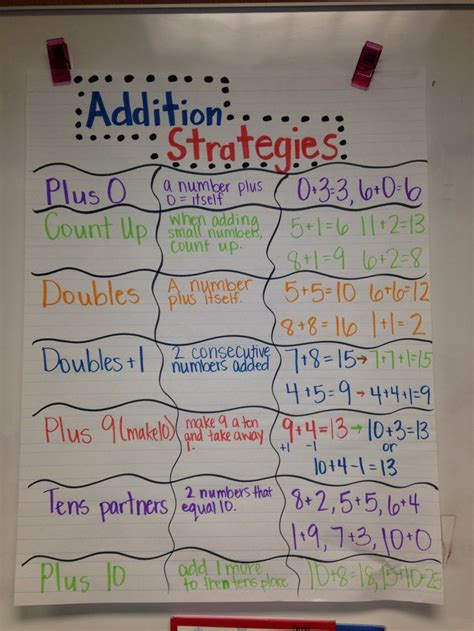 Addition
Strategies
Plus 0
a number plus
0 = itself
0+3=3, 6+0=6
Count Up
when adding
small numbers,
count up.
5+1=6 11+2=13
8+1=9 6+2=8
Doubles
A number
plus itself.
5+5=10 6+6=12
8+8=16 1+1=2
Doubles+1
2 consecutive
numbers added
7+8=15→7+7+1=15
4+5=9→4+4+1=9
Plus 9 (make 10)
make 9 a ten
and take away
1.
9+4=13→10+3=13
+1 -1 or
10+4-1=13
Tens partners
2 numbers that
equal 10.
8+2, 5+5, 6+4
1+9, 7+3, 10+0
Plus 10
add 1 more
to then tens place
10+8=18, 15+10=25